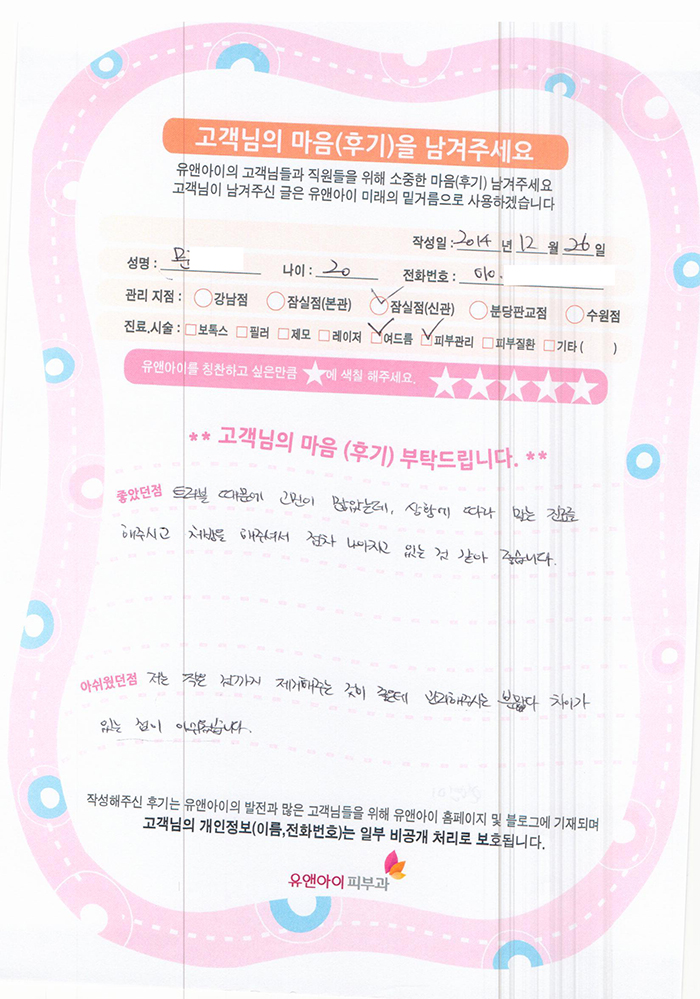 고객님의 마음(후기)을 남겨주세요
유앤아이의 고객님들과 직원들을 위해 소중한 마음(후기) 남겨주세요
고객님이 남겨주신 글은 유앤아이 미래의 밑거름으로 사용하겠습니다
작성일 : 2014 년 12 월 26 일
성명 : 문 나이 : 20 전화번호 : 010.
관리 지점 : 강남점 잠실점(본관) 잠실점(신관) 분당판교점 수원점
진료,시술 : 보톡스 필러 제모 레이저 여드름 피부관리 피부질환 기타 ( )
유앤아이를 칭찬하고 싶은만큼 ★에 색칠 해주세요. ★★★★★
** 고객님의 마음 (후기) 부탁드립니다. **
좋았던점 트러블 때문에 고민이 많았는데, 상황에 따라 맞는 진료를
해주시고 처방을 해주셔서 점차 나아지고 있는 것 같아 좋습니다.
아쉬웠던점 저는 작은 것까지 제거해주는 것이 좋은데 관리해주시는 분마다 차이가
있는 점이 아쉬웠습니다.
작성해주신 후기는 유앤아이의 발전과 많은 고객님들을 위해 유앤아이 홈페이지 및 블로그에 기재되며
고객님의 개인정보(이름,전화번호)는 일부 비공개 처리로 보호됩니다.
유앤아이피부과